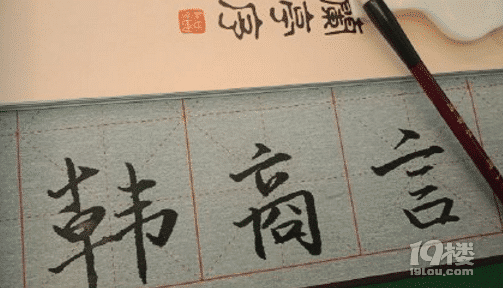 蘭亭序
韩商言
19楼
19lou.com